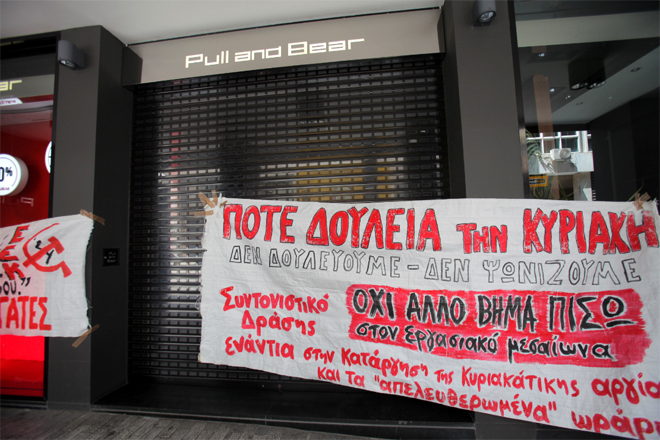 Pull and Bear
ear
0%
ΠΟΤΕ ΔΟΥΛΕΙΑ την ΚΥΡΙΑΚΗ
ΔΕΝ ΔΟΥΛΕΥΟΥΜΕ - ΔΕΝ ΨΩΝΙΖΟΥΜΕ
Συντονιστικό
Δράσης
ενάντια στην κατάργηση της Κυριακάτικης αργία
και τα "απελευθερωμένα" ωράρι
ΟΧΙ ΑΛΛΟ ΒΗΜΑ ΠΙΣΩ
στον εργασιακό μεσαίωνα
Ε
Κ
ου."
ΓΑΤΕΣ